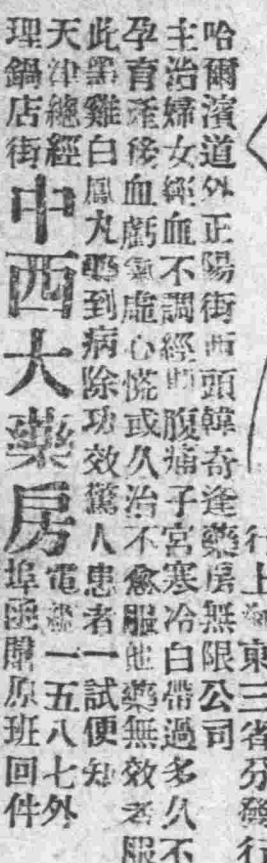 行上海東三省分發行
哈爾濱道外正陽街西頭韓奇逢藥房無限公司
主治婦女經血不調經期腹痛子宮寒冷白帶過多久不
孕育產後血虧氣虛心慌或久治不愈服他藥無效者服
此黑雞白鳳丸藥到病除功效驚人患者一試便知
天津總經理鍋店街
中西大藥房
電話一五八七外埠函購原班回件